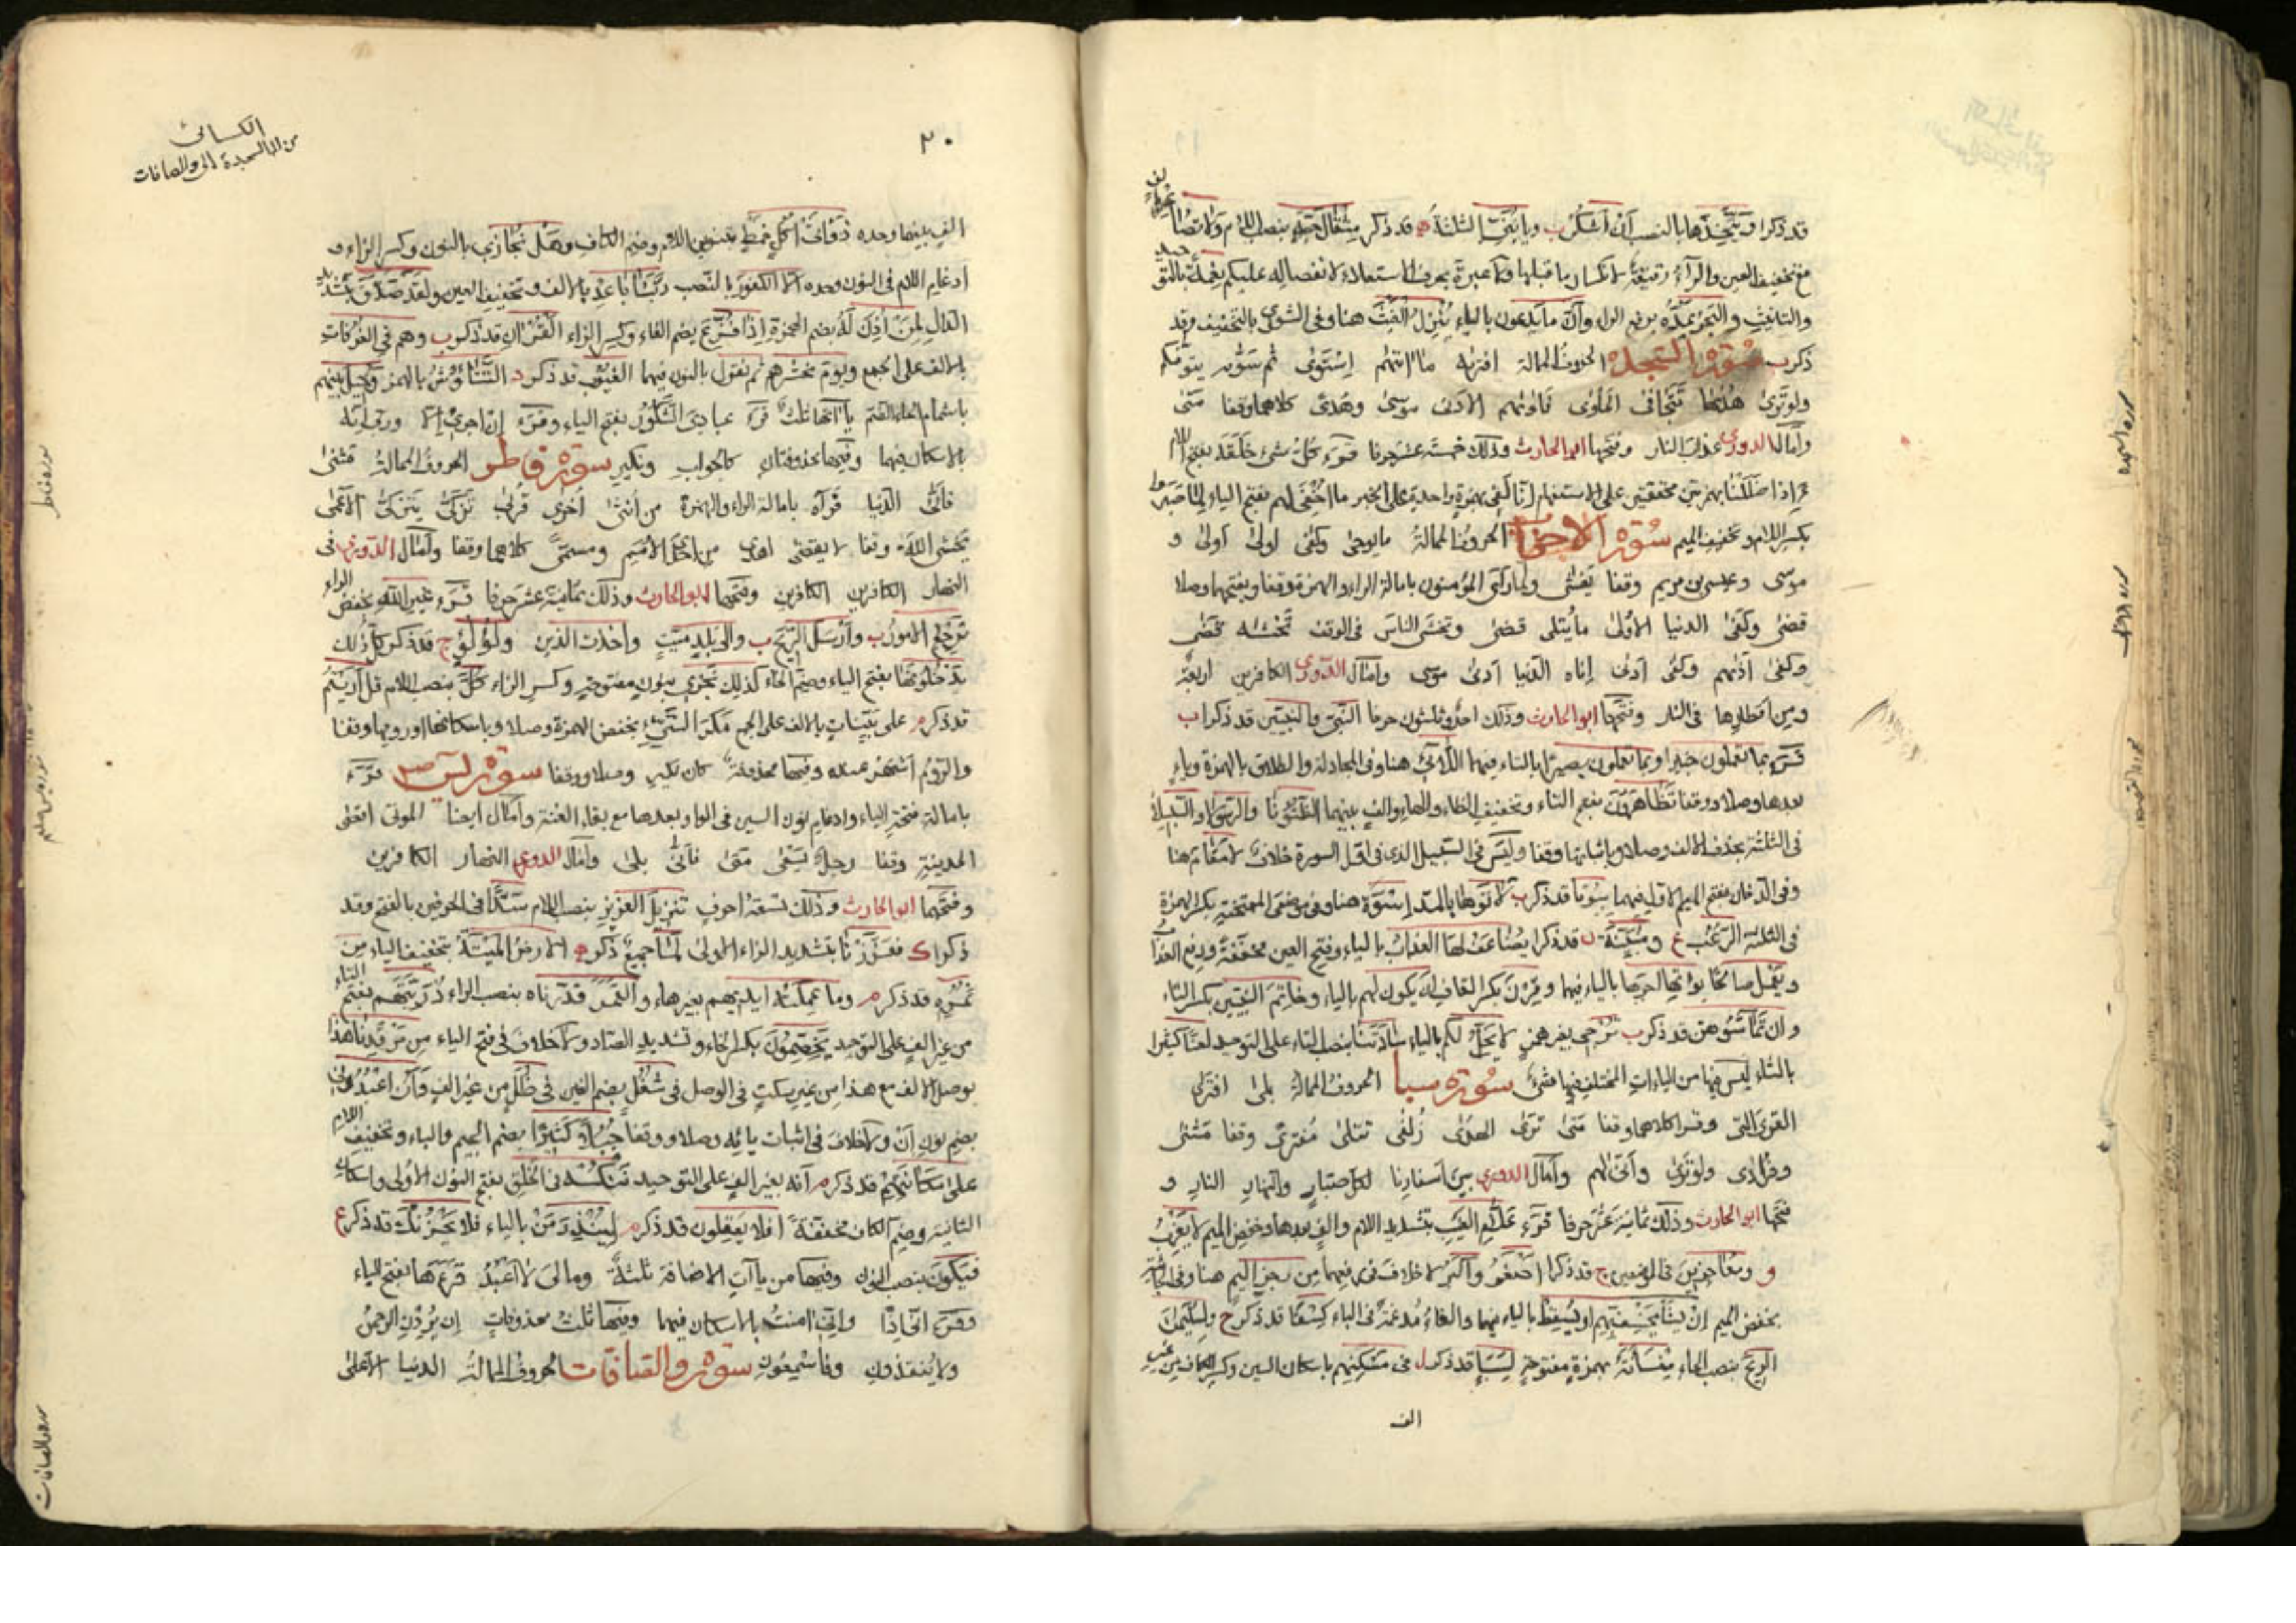 قد ذكرا ويتخذها بالنصب أن اشكر ب ويا بني الثلثة قد ذكر مثقال حبة بنصب اللام ولا تصاعر بالف
مع تخفيف العين والراء رقيقة لانكسار ما قبلها ولا عبرة بحرف الاستعلاء لانفصاله عليكم نعمة بالتوحيد
والتانيث والبحر يمده برفع الراء وأن ما يدعون بالياء ينزل الغيث هنا وفى الشورى بالتخفيف وقد
ذكر ب سورة السجدة الحروف الممالة افتراه ما اتيهم استوى ثم سويه يتوفيكم
ولو ترى هديها تتجافى المأوى فماويهم الادنى موسى وهدى كلاهما وقفا متى
وأمال الدورى عذاب النار وفتحها ابو الحارث وذلك خمسة عشر حرفا قرء كل شىء خلقه بفتح اللام
ءاذا ضللنا بهمزتين محققتين على الاستفهام إنا لفى بهمزة واحدة على الخبر ما اخفى لهم بفتح الياء لما صبروا
بكسر اللام وتخفيف الميم سورة الاحزاب الحروف الممالة ما يوحى وكفى اولى اولى و
موسى وعيسى بن مريم وقفا يغشى ولما رأى المؤمنون بامالة الراء والهمزة وقفا وبفتحهما وصلا
قضى وكفى الدنيا الأولى ما يتلى قضى وتخشى الناس فى الوقف تخشيه قضى
وكفى اذيهم وكفى ادنى إناه الدنيا ادنى موسى وامال الدورى الكافرين اربعة
ومن اقطارها فى النار وفتحها ابو الحارث وذلك احد وثلثون حرفا النبى والنبيين قد ذكرا ب
قرء بما تعملون خبيرا وبما تعملون بصيرا بالتاء فيهما اللائى هنا وفى المجادلة والطلاق بالهمزة وياء
بعدها وصلا ووقفا تظاهرون بفتح التاء وتخفيف الظاء والهاء والف بينهما الظنونا والرسولا والسبيلا
فى الثلثة بحذف الالف وصلا وباثباتها وقفا وليس فى السبيل الذى فى اول السورة خلاف لا مقام هنا
وفى الدخان بفتح الميم الاولى فيهما بيوتا قد ذكر ب لاتوها بالمد إسوة هنا وفى موضعى الممتحنة بكسر الهمزة
فى الثلثة الرعب ع ومبينة ن قد ذكرا يضاعف لها العذاب بالياء وفتح العين مخففة ورفع العذاب
ويعمل صالحا يؤتها اجرها بالياء فيهما وقرن بكسر القاف أن يكون لهم بالياء وخاتم النبيين بكسر التاء
وان تماسوهن قد ذكر ب ترجى بغير همز لا يحل لكم بالياء سادتنا بنصب التاء على التوحيد لعنا كثيرا
بالثاء ليس فيها من الياءات المختلف فيها شىء سورة سبا الحروف الممالة بلى افترى
القرى التى وقرا كلاهما وقفا متى ترى الهدى زلفى تتلى مفترى وقفا مثنى
وفرادى ولو ترى وأنى لهم وأمال الدورى بين اسفارنا لكل صبار والنهار النار و
فتحها ابو الحارث وذلك ثمانية عشر حرفا قرء علام الغيب بتشديد اللام والف بعدها وخفض الميم لا يعزب
و ومعاجزين فى الموضعين ج قد ذكرا اصغر واكبر لا خلاف فى رفعهما من رجز اليم هنا وفى الجاثية
بخفض الميم إن يشأ يخسف بهم او يسقط بالياء فيها والفاء مدغمة فى الباء كسفا قد ذكر ح ولسليمن
الريح بنصب الحاء منسأته بهمزة مفتوحة لسبإ قد ذكر ل فى مسكنهم باسكان السين وكسر الكاف من غير
الف
الكسائى
من الم السجدة الى والصافات
٢٠
الف بينهما وحده ذواتى اكل خمط بتنوين اللام وضم الكاف وهل نجازى بالنون وكسر الزاء و
ادغام اللام فى النون وحده الا الكفور بالنصب ربنا باعد بالالف وتخفيف العين ولقد صدق بتشديد
الدال لمن أذن له بضم الهمزة إذا فزع بضم الفاء وكسر الزاء القران قد ذكر ب وهم فى الغرفات
بالالف على الجمع ويوم نحشرهم ثم نقول بالنون فيهما الغيوب قد ذكر د التناؤش بالهمز وحيل بينهم
باشمام الحاء الضم ياآتها ثلث قرء عبادى الشكور بفتح الياء وقرء إن اجرى إلا وربى إنه
بالاسكان فيهما وفيها محذوفتان كالجواب ونكير سورة فاطر الحروف الممالة مثنى
فأنى الدنيا فرآه بامالة الراء والهمزة من أنثى أخرى قربى تزكى يتزكى الأعمى
يخشى الله وقفا لا يقضى اهدى من احدى الأمم ومسمى كلاهما وقفا وأمال الدورى فى
النهار الكافرين الكافرين وفتحها ابو الحارث وذلك ثمانية عشر حرفا قرء غير الله بخفض الراء
ترجع الامور ب وأرسل الريح ب والى بلد ميت واخذت الذين ولؤلؤ ج قد ذكر كل ذلك
يدخلونها بفتح الياء وضم الخاء كذلك نجزى بنون مفتوحة وكسر الزاء كل بنصب اللام قل أريتم
قد ذكر م على بينات بالالف على الجمع مكر السيىء بخفض الهمزة وصلا وباسكانها او رومها وقفا
والروم أشهر عنه وفيها محذوفة كان نكير وصلا ووقفا سورة يس قرء
بامالة فتحة الياء وادغام نون السين فى الواو بعدها مع بقاء الغنة وامال ايضا الموتى اقصى
المدينة وقفا رجل يسعى متى فأنى بلى وأمال الدورى النهار الكافرين
وفتحهما ابو الحارث وذلك تسعة احرف تنزيل العزيز بنصب اللام سدا فى الحرفين بالفتح وقد
ذكرا ك فعززنا بتشديد الزاء الاولى لما جميع ذكر ه الارض الميتة بتخفيف الياء من
ثمره قد ذكر م وما عملته ايديهم بغير هاء والقمر قدرناه بنصب الراء ذريتهم بفتح التاء
من غير الف على التوحيد يخصمون بكسر الخاء وتشديد الصاد ولا خلاف فى فتح الياء من مرقدنا هذا
بوصل الالف مع هذا من غير سكت فى الوصل فى شغل بضم الغين فى ظلل من غير الف وأن اعبدونى
بضم نون أن ولا خلاف فى اثبات يائه وصلا ووقفا جبلا كثيرا بضم الجيم والباء وتخفيف اللام
على مكانتهم قد ذكر م أنه بغير الف على التوحيد ننكسه فى الخلق بفتح النون الأولى واسكان
الثانية وضم الكاف مخففة أفلا يعقلون قد ذكر م لينذر من بالياء فلا يحزنك قد ذكر ع
فيكون بنصب النون وفيها من ياآت الاضافة ثلثة ومالى لا اعبد قرءها بفتح الياء
وقرء انى اذا وانى امنت بالاسكان فيهما وفيها ثلث محذوفات إن يردن الرحمن
ولا ينقذون وفاسمعون سورة والصافات الحروف الممالة الدنيا الأعلى
سورة السجدة
سورة الاحزاب
سورة فاطر
سورة والصافات